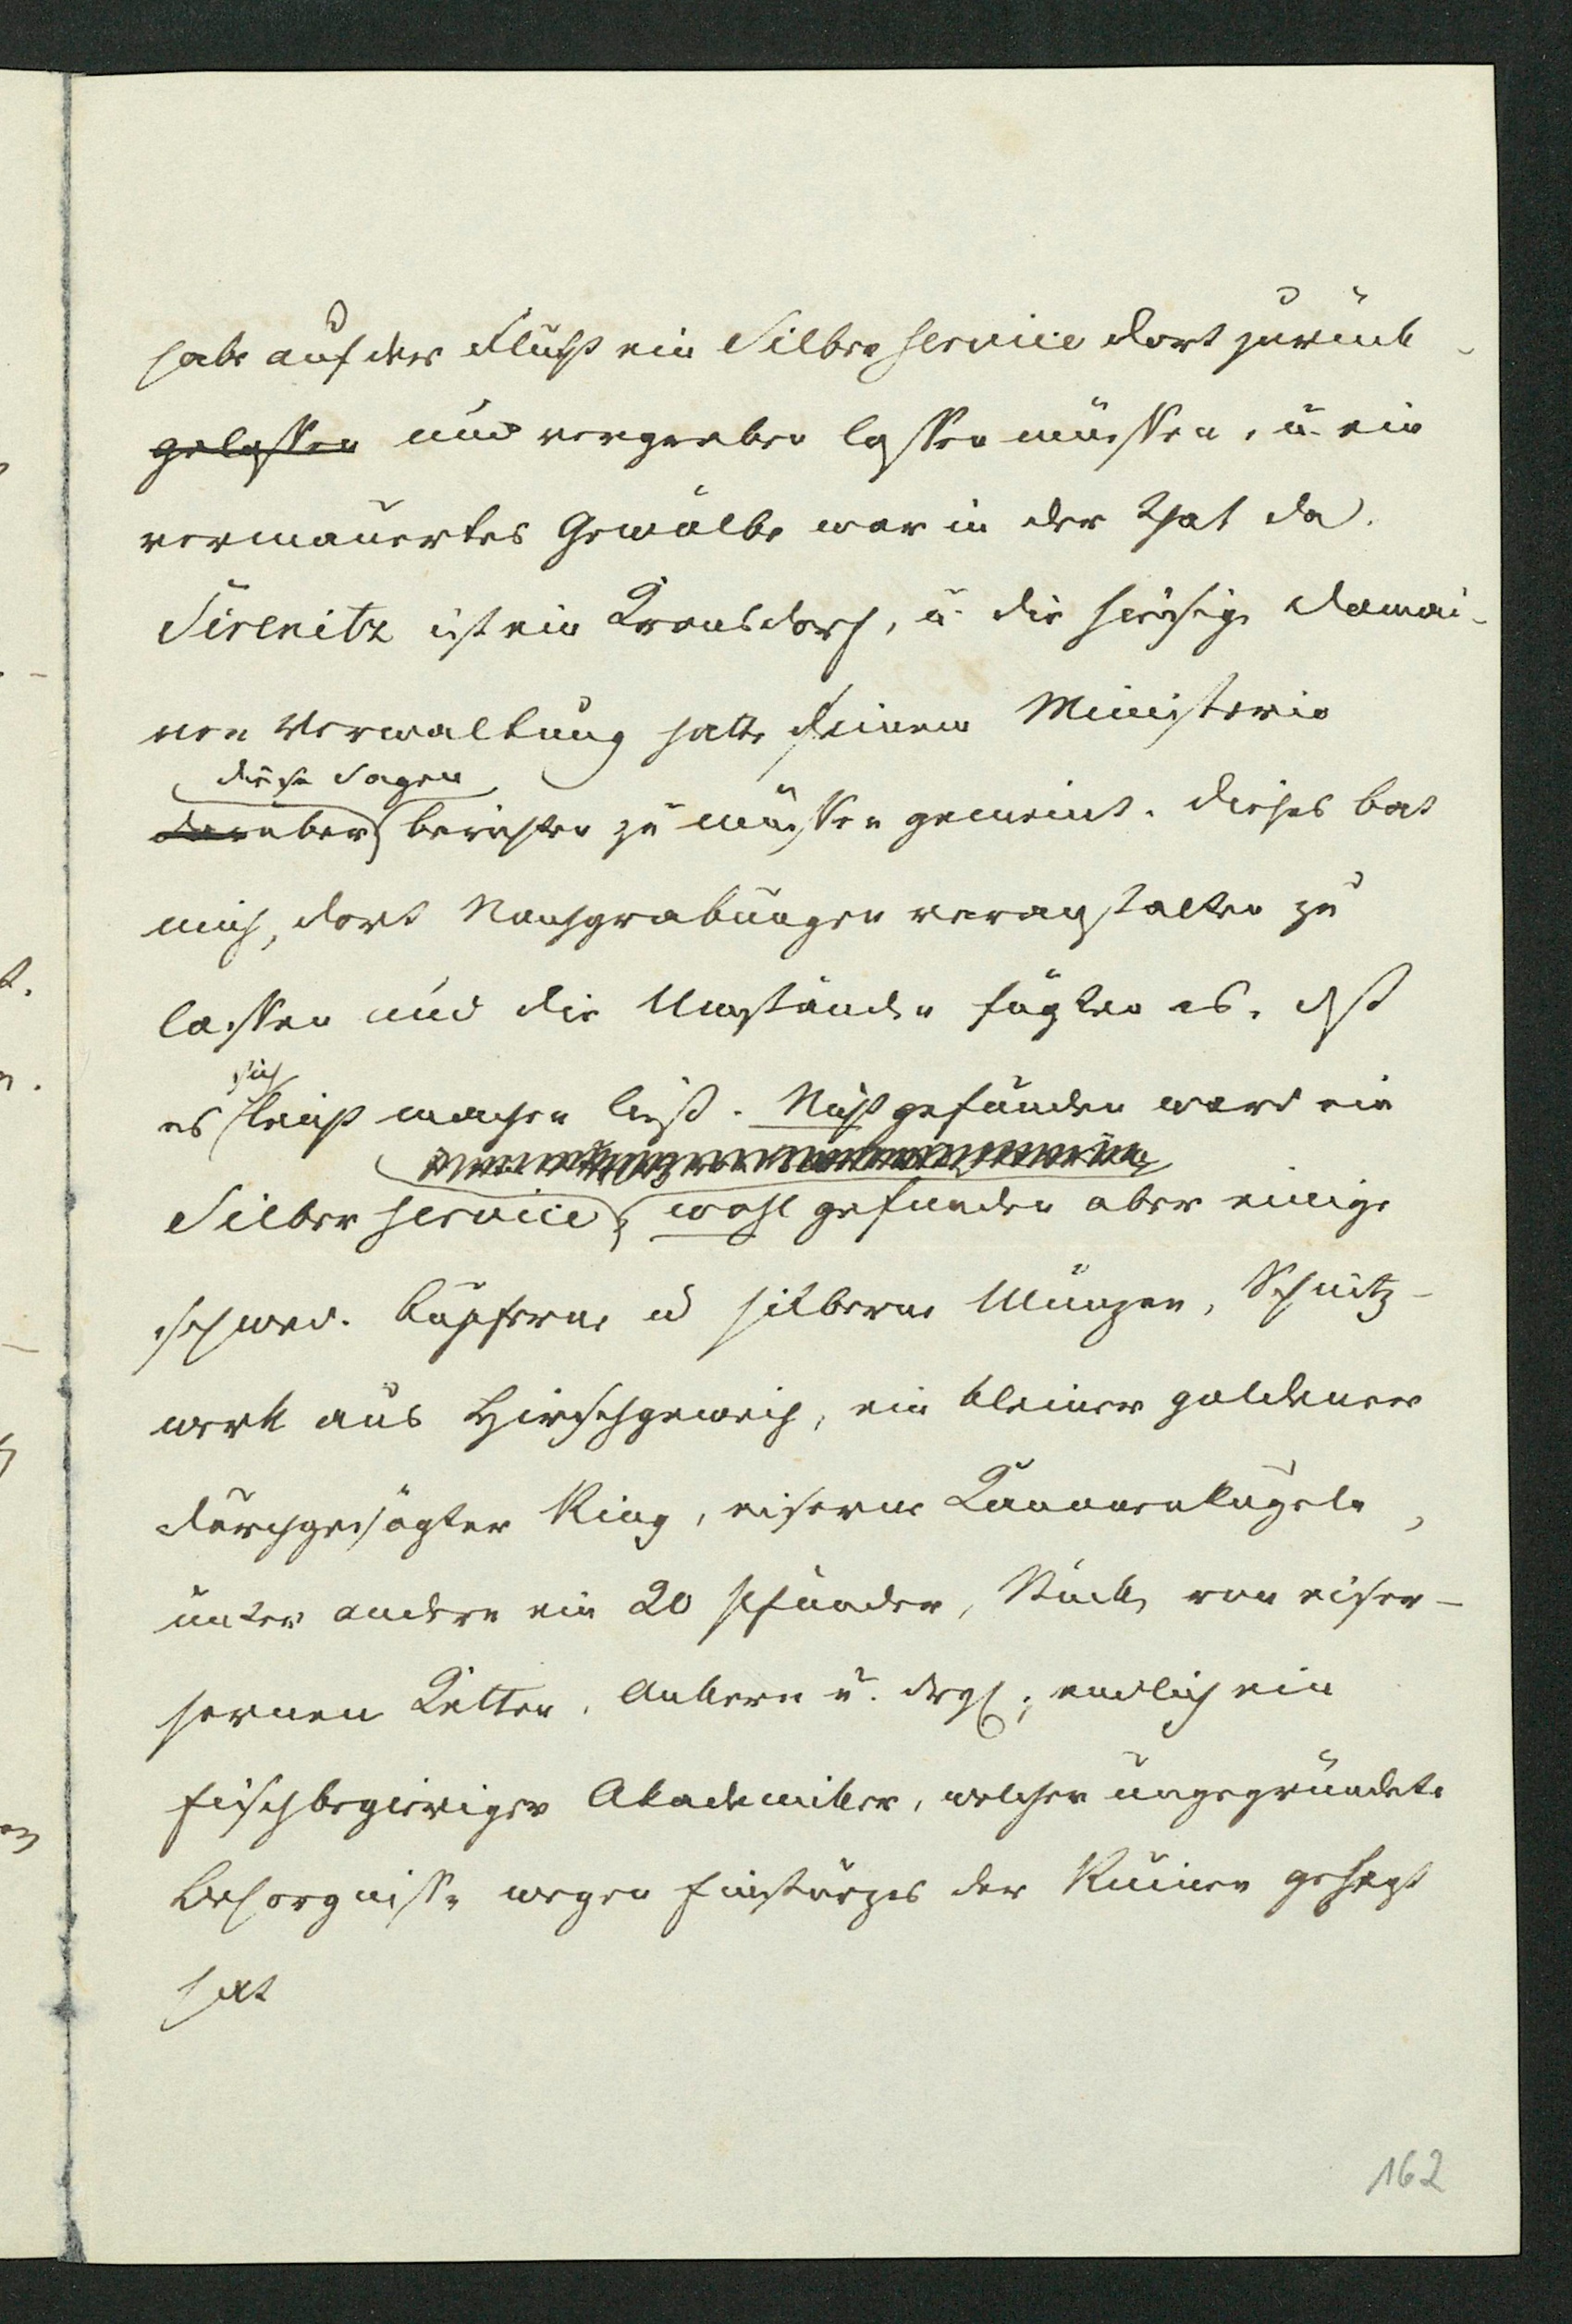 habe auf der Flucht ein Silberservice dort zurück-
gelassen und vergraben lassen müssen, u. ein
vermauertes Gewölbe war in der That da.
Sirenitz ist ein Kronsdorf, u. die hiesige Domai-
nen Verwaltung hatte seinem Ministerio
diese Sagen
darüber berichten zu müssen gemeint. Dieses bat
mich, dort Nachgrabungen veranstalten zu
lassen und die Umstände fügten es, daß
sich
es leicht machen ließ. Nicht gefunden ward ein
Silberservice, wohl gefunden aber einige
schwed. kupferne u silberne Münzen, Schnitz-
werk aus Hirschgeweih, ein kleiner goldener
durchgesägter Ring, eiserne Kanonenkugeln,
unter andern ein 20 Pfünder, Stücke von eiser-
sernen Ketten, Ankern u. drgl; endlich ein
fischbegieriger Akademiker, welcher ungegründete
Besorgnisse wegen Einsturzes der Ruinen gehegt
hat
162